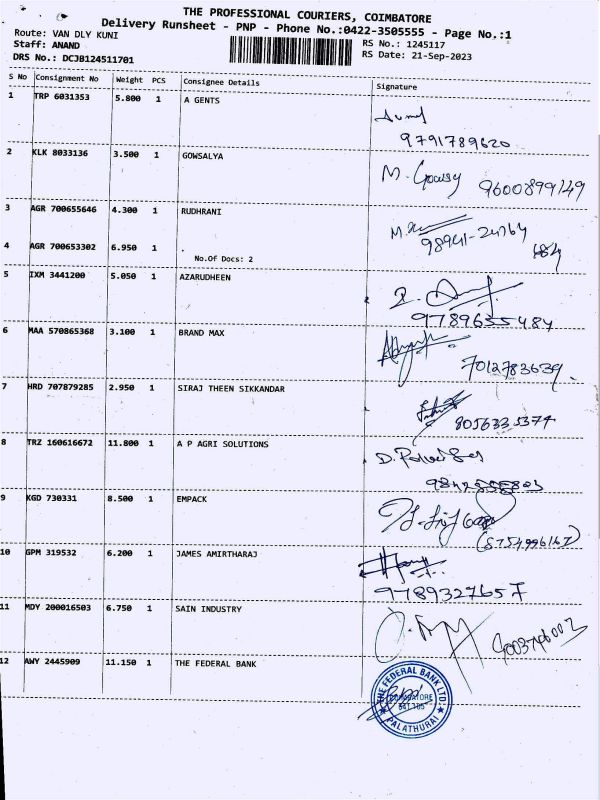 THE PROFESSIONAL COURIERS, COIMBATORE
Delivery Runsheet - PNP - Phone No.:0422-3505555 - Page No.:1
Route: VAN DLY KUNI
RS No.: 1245117
Staff: ANAND
RS Date: 21-Sep-2023
DRS No.: DCJB124511701
S No Consignment No Weight PCS Consignee Details Signature
1 TRP 6031353 5.800 1 A GENTS
9791789620
2 KLK 8033136 3.500 1 GOWSALYA
M. Gowsy 9600899149
3 AGR 700655646 4.300 1 RUDHRANI
98941-24764
4 AGR 700653302 6.950 1
No.Of Docs: 2
5 IXM 3441200 5.050 1 AZARUDHEEN
9789635484
6 MAA 570865368 3.100 1 BRAND MAX
7012783639
7 HRD 707879285 2.950 1 SIRAJ THEEN SIKKANDAR
8056335374
8 TRZ 160616672 11.800 1 A P AGRI SOLUTIONS
9 KGD 730331 8.500 1 EMPACK
(8754996167)
10 GPM 319532 6.200 1 JAMES AMIRTHARAJ
9789327657
11 MDY 200016503 6.750 1 SAIN INDUSTRY
9003746002
12 AWY 2445909 11.150 1 THE FEDERAL BANK
THE FEDERAL BANK LTD.
COIMBATORE
PALATHURAI